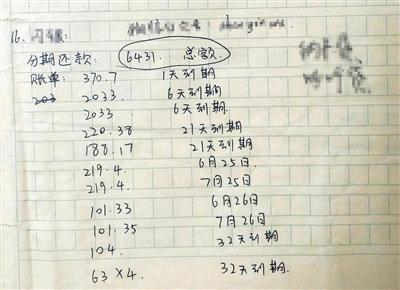 16.
分期还款: 6431 总额
账单: 370.7 1天到期
203 2033. 6天到期
2033 6天到期
220.38 21天到期
188.17 21天到期
219.4. 6月25日.
219.4. 7月25日
101.33 6月26日
101.35 7月26日
104. 32天到期
63×4. 32天到期.